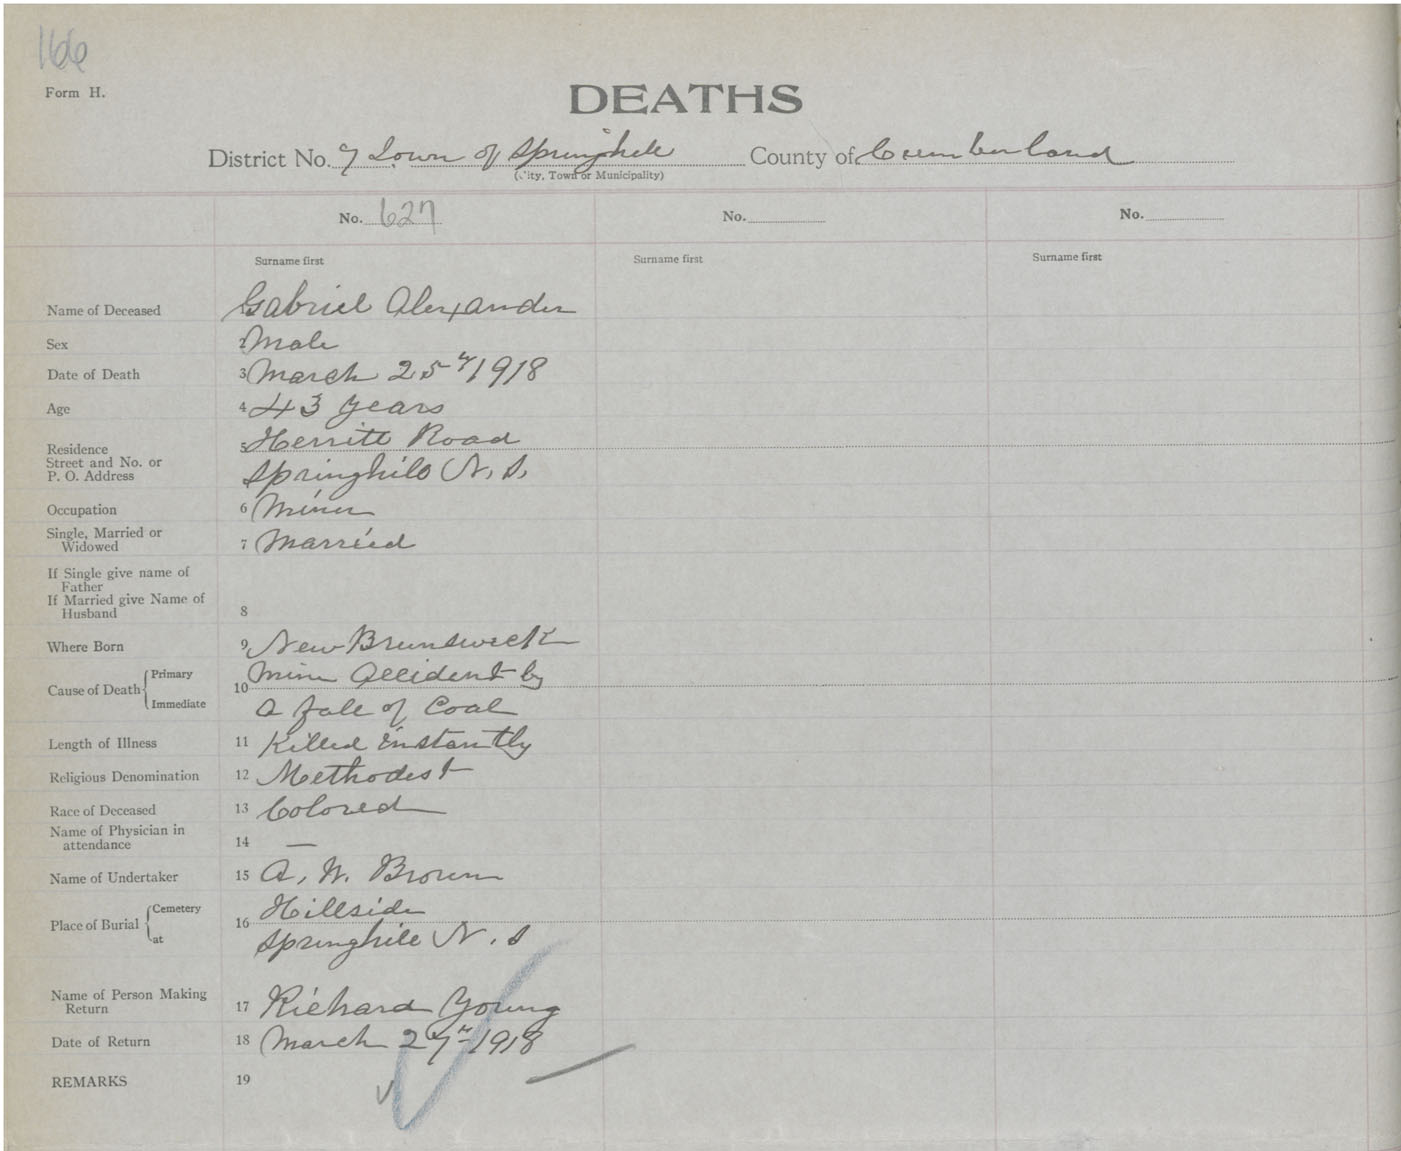 166
Form H.
DEATHS
District No. 7 Town of Springhill County of Cumberland
(City, Town or Municipality)
No. 627 No. No.
Surname first Surname first Surname first
Name of Deceased Gabriel Alexander
Sex 2 Male
Date of Death 3 March 25th 1918
Age 4 43 years
Residence
Street and No. or
P. O. Address
5 Herritt Road
Springhill N. S.
Occupation 6 Miner
Single, Married or
Widowed
7 Married
If Single give name of
Father
If Married give Name of
Husband
8
Where Born 9 New Brunswick
Cause of Death Primary
Immediate
10 Mine Accident by
a fale of Coal
Length of Illness 11 Killed instantly
Religious Denomination 12 Methodist
Race of Deceased 13 Colored
Name of Physician in
attendance
14 —
Name of Undertaker 15 A. W. Brown
Place of Burial Cemetery
at
16 Hillside
Springhill N. S
Name of Person Making
Return
17 Richard Young
Date of Return 18 March 27th 1918
REMARKS 19